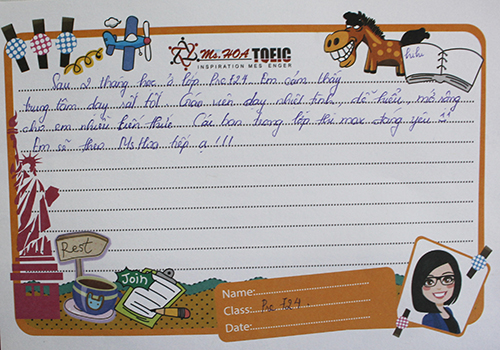 Ms.HOA TOEIC
INSPIRATION MESSENGER
hihi
Sau 2 tháng học ở lớp Pre524. Em cảm thấy
trung tâm dạy rất tốt. Giáo viên dạy nhiệt tình, dễ hiểu, mở rộng
cho em nhiều kiến thức. Các bạn trong lớp thì max đáng yêu
Em sẽ theo Ms Hoa tiếp ạ!!!
Rest
Join
Name:
Class: Pre 524
Date: